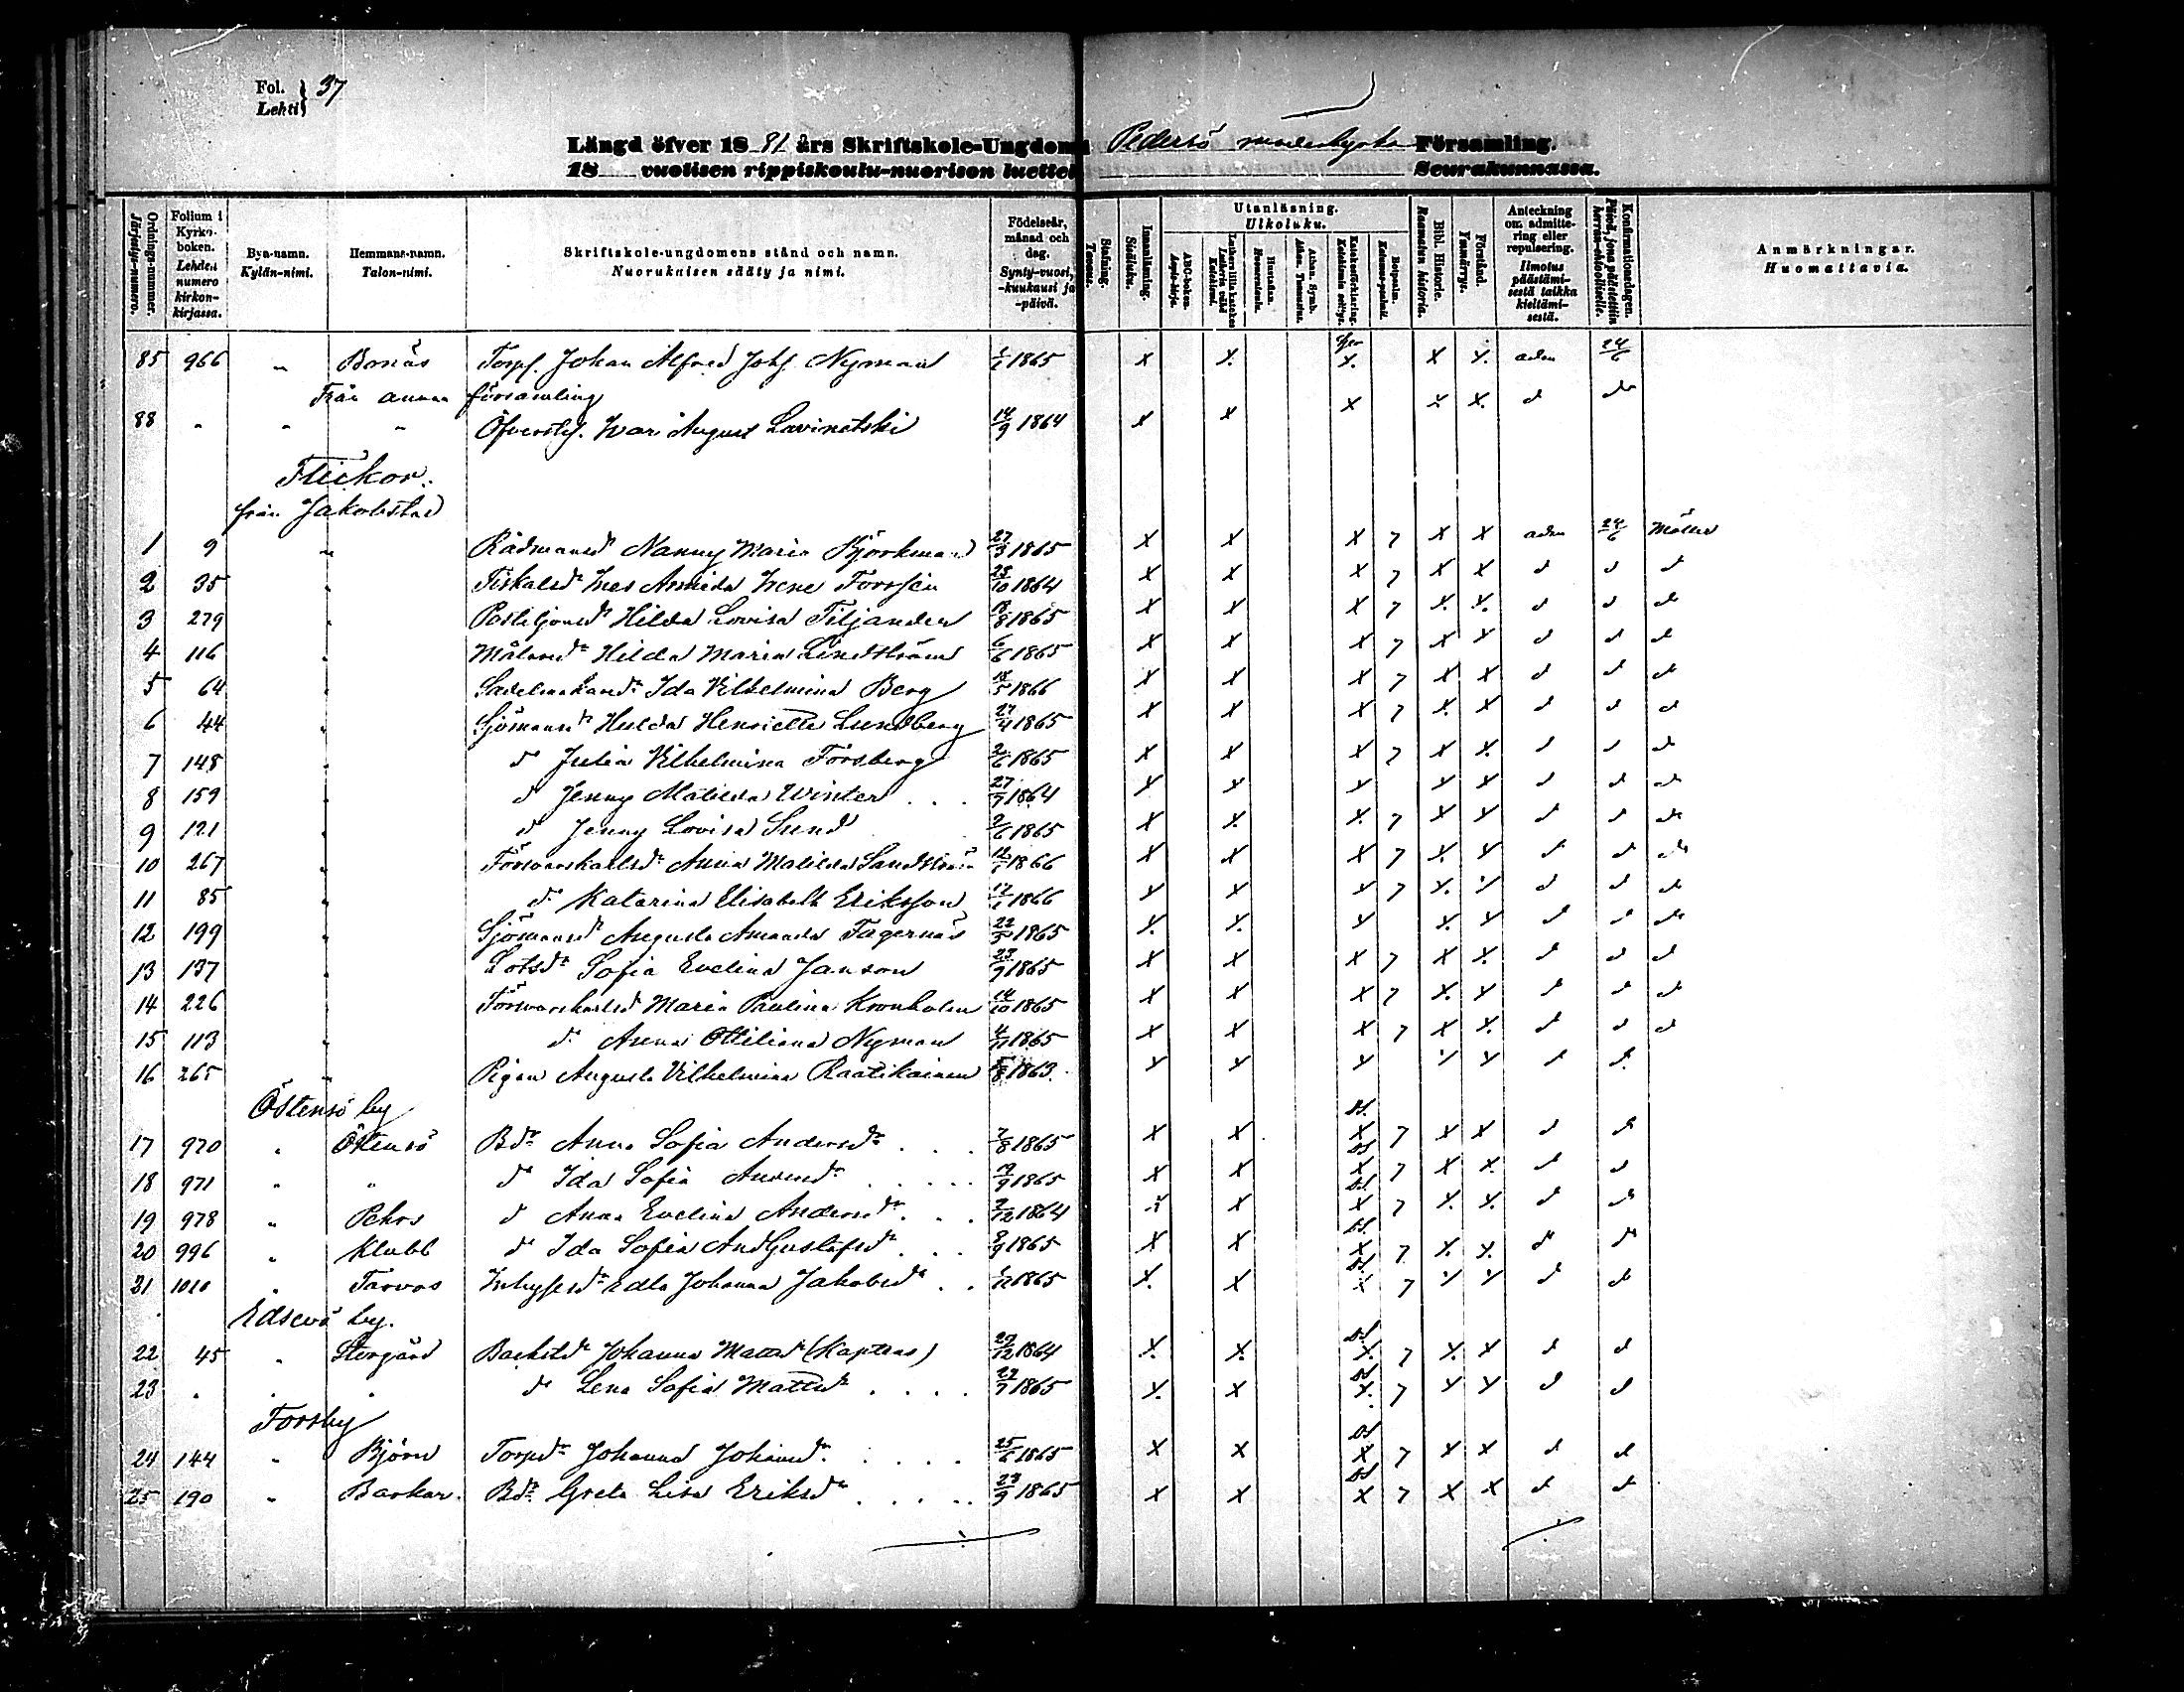 Fol. } 37
Lehti
Längd öfver 1881 års Skriftskole-Ungdom Pedersö moderkyrko Församling.
18 vuotisen rippikoulu-nuorison luettelo Seurakunnassa.
Ordnings-nummer. Järjestys-numero.
Folium i Kyrko-boken. Lehden numero kirkon-kirjassa.
Bya-namn. Kylän-nimi.
Hemmans-namn. Talon-nimi.
Skriftskole-ungdomens stånd och namn. Nuorukaisen sääty ja nimi.
Födelseår, månad och dag. Synty-vuosi, -kuukausi ja -päivä.
Stafning. Tavaus.
Innanläsning. Sisäluku.
Utanläsning. Ulkoluku.
ABC-boken. Aapis-kirja.
Hustaflan. Huoneentaulu.
Athan. Symb. Athan. Tunnustus.
Botpsalm. Katumus-psalmi.
Bibl. Historie. Raamatun historia.
Förstånd. Ymmärrys.
Anteckning om admittering eller repulsering. Ilmoitus päästämisestä taikka kieltämisestä.
Konfirmationsdagen.
Anmärkningar. Huomattavia.
85 966 " Bonäs Torps. Johan Alfred Johs Nyman 1865 x x. x. x x. adm 24/6
Från annan församling
88 " " " Öfverstes. Ivar August Lavinetski 14/9 1864 x x x x x. d do
Flickor.
från Jakobstad
1 9 " Rådmansdr Nanny Maria Björkman 27/3 1865 x x x 7 x x adm 24/6 Möller
2 35 " Fiskalsdr Ines Armida Irene Forssén 28/10 1864 x x x 7 x x d d d
3 279 " Postiljonsdr Hilda Lovisa Tiljander 18/8 1865 x x x 7 x. x. d d d
4 116 " Målaredr Hilda Maria Lindström 6/6 1865 x x x 7 x x d d d
5 64 " Sadelmakaredr Ida Vilhelmina Berg 18/5 1866 x x x 7 x x d d d
6 44 " Sjömansdr Hulda Henriette Lundberg 27/4 1865 x x x 7 x. x d d d
7 148 " d Julia Vilhelmina Forsberg 2/6 1865 x x x 7 x x. d d d
8 159 " d Jenny Matilda Winter 27/7 1864 x x x x x d d d
9 121 " d Jenny Lovisa Sund 2/6 1865 x x. x. 7 x x d d d
10 267 " Försvarskarlsdr Anna Matilda Sandström 1866 x x x 7 x. x d d d
11 85 " d. Katarina Elisabeth Eriksson 1866 x x x 7 x. x d d d
12 199 " Sjömansdr Augusta Amanda Fagernäs 22/5 1865 x. x. x x. x d d d
13 137 " Lotsdr Sofia Evelina Janson 23/7 1865 x x x 7 x x. d d d
14 226 " Försvarskarlsdr Maria Paulina Kronholm 14/10 1865 x x x 7 x. x d d d
15 113 " d. Anna Ottiliana Nyman 4/11 1865 x x x 7 x x. d d d
16 265 " Pigan Augusta Vilhelmina Raatikainen 1863. x x x x x d d
Östensö by
17 970 " Östensö Bdr Anna Sofia Andersdr 7/8 1865 x x x 7 x x d d
18 971 " " d Ida Sofia Andersdr 1865 x x x 7 x x. d d
19 978 " Pehrs d Anna Evelina Andersdr 7/12 1864 x x x 7 x. x. d d
20 996 " Klubb d Ida Sofia And Gustafsdr 1865 x x x 7 x. x. d d
21 1010 " Tarvos Inhysesdr Edla Johanna Jakobsdr 1865 x. x x 7 x x d d
Edsevö by.
22 45 " Storgård Backstdr Johanna Mattsdr (Kaptens) 29/12 1864 x. x. x. 7 x. x d d
23 " " " d Lena Sofia Mattsdr 22/7 1865 x. x x. 7 x x d d
Forsby
24 144 " Björn Torpdr Johanna Johansdr 25/6 1865 x x x 7 x x d d
25 190 " Backar Bdr Greta Lisa Eriksdr 1865 x x x 7 x x d d